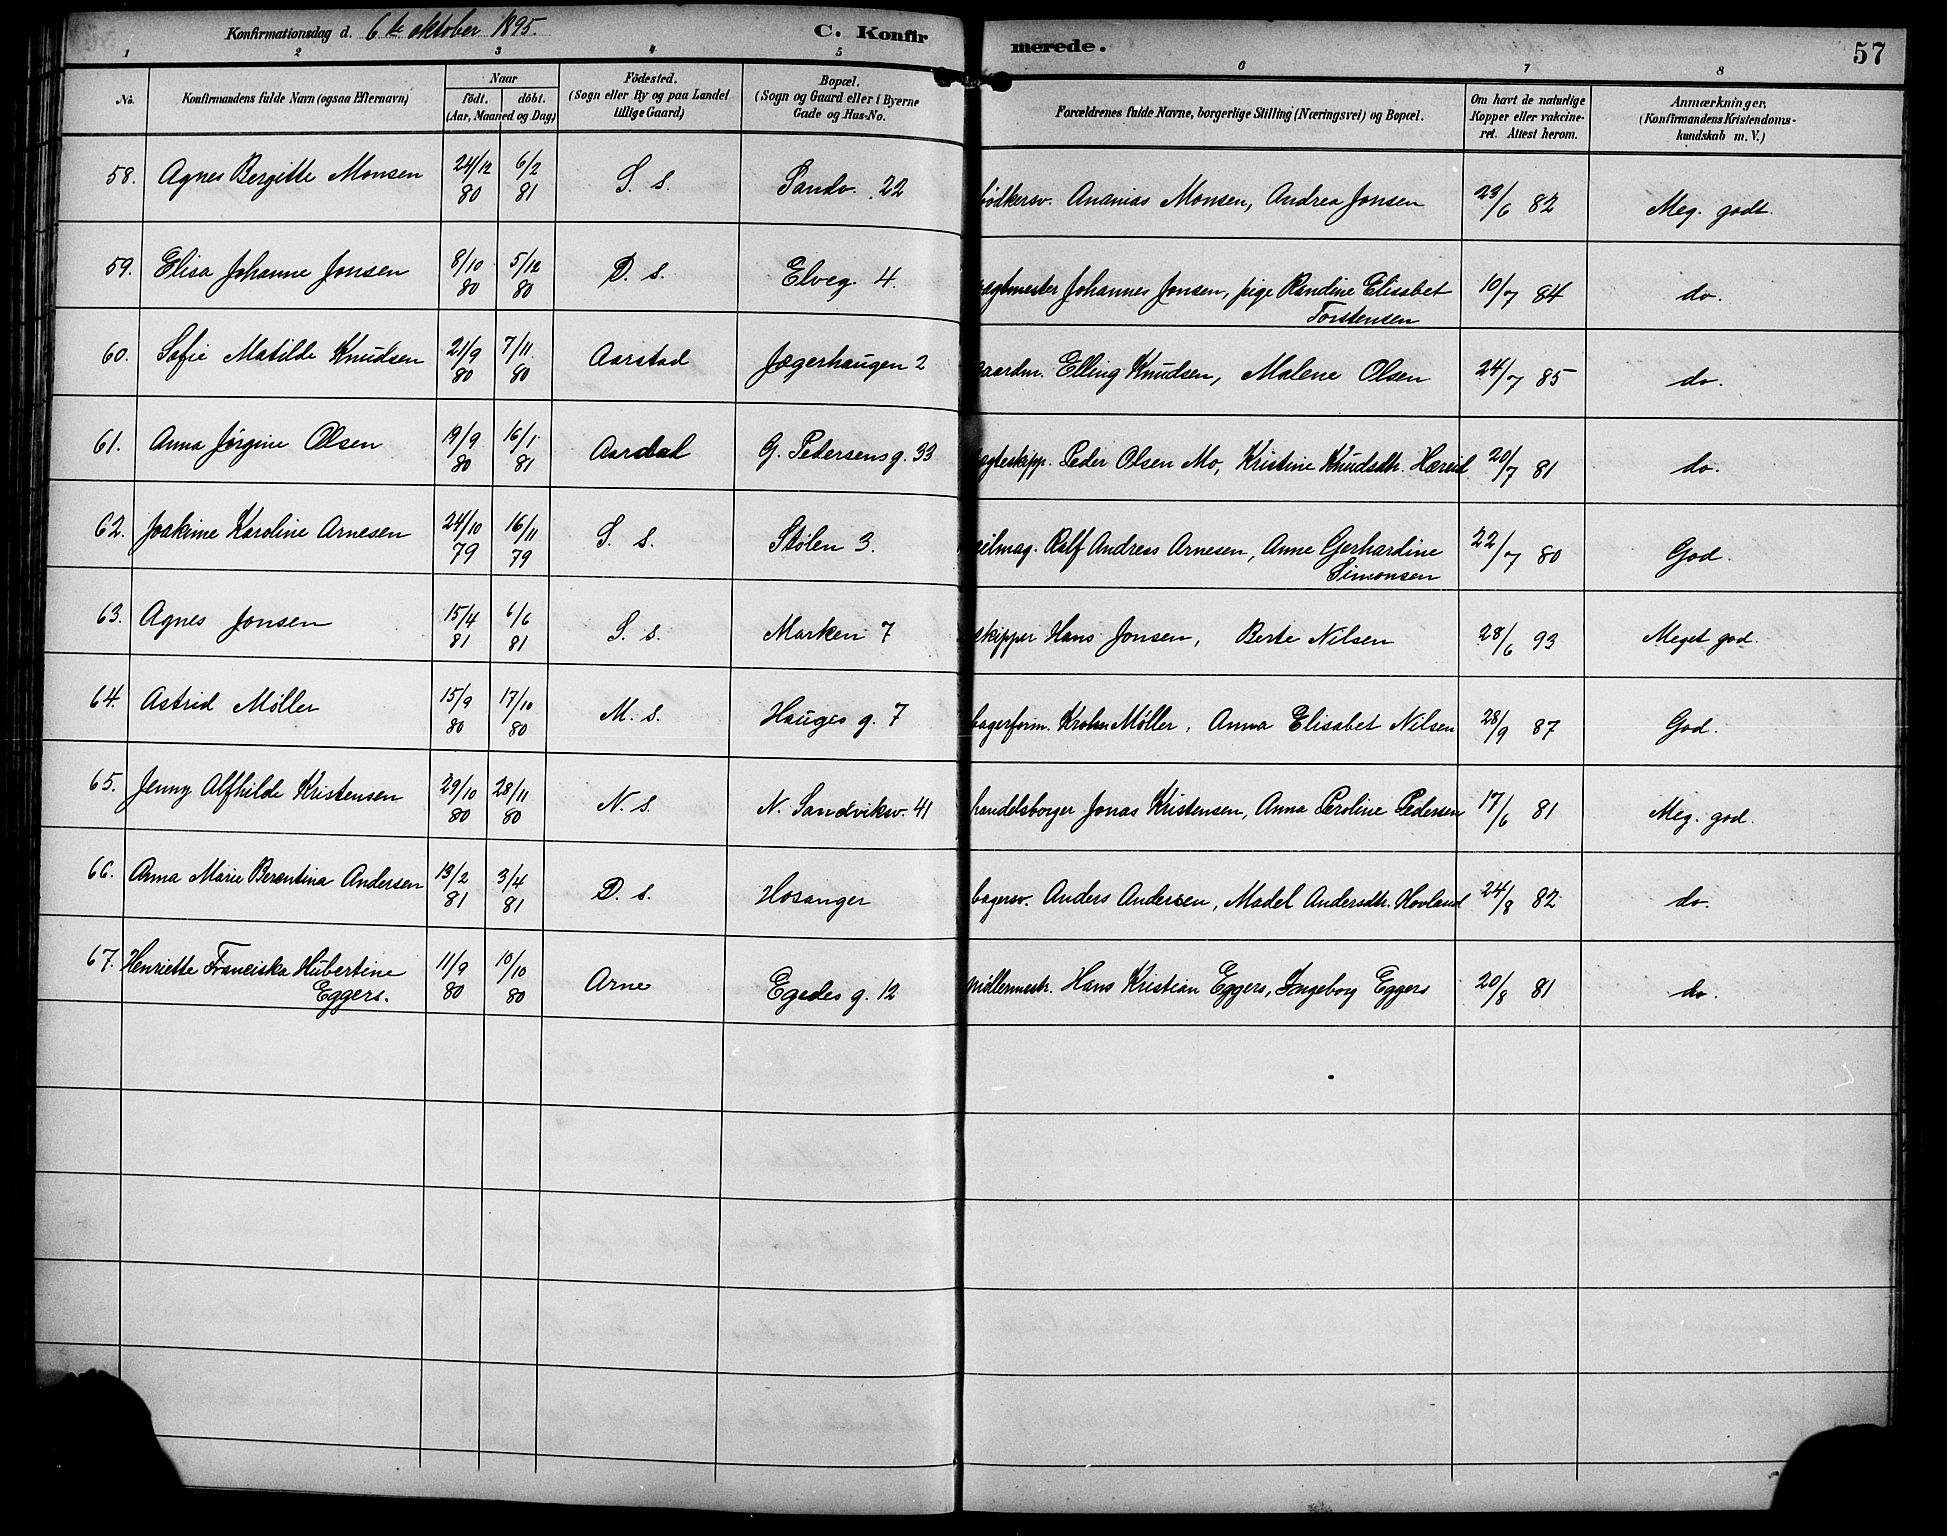 Konfirmationsdag d. 6te oktober 1895. C. Konfirmerede. 57
1 2 3 4 5 6 7 8
No. Konfirmandens fulde Navn (ogsaa Efternavn) Naar födt. döbt. (Aar, Maaned og Dag) Födested. (Sogn eller By og paa Landet tillige Gaard) Bopæl. (Sogn og Gaard eller i Byerne Gade og Hus-No. Forældrenes fulde Navne, borgerlige Stilling (Næringsvei) og Bopæl. Om havt de naturlige Kopper eller vakcineret. Attest herom. Anmærkninger. (Konfirmandens Kristendomskundskab m. V.)
58. Agnes Bergitte Monsen 24/12 80 6/2 81 S. s. Sandv. 22 bødkersv. Ananias Monsen, Andrea Jonsen 23/6 82 Meg. godt.
59. Elisa Johanne Jonsen 8/10 80 5/12 80 D. s. Elveg. 4. Johannes Jonsen, pige Randine Elisabet Torstensen 10/7 84 do.
60. Sofie Matilde Knudsen 21/9 80 7/11 80 Aarstad Jægerhaugen 2 gaardm. Elling Knudsen, Malene Olsen 24/7 85 do.
61. Anna Jørgine Olsen 19/9 80 16/1 81 Aardal G. Petersensg. 33 jagteskipp. Peder Olsen Mo, Kristine Knudsdtr. Hæreid 20/7 81 do.
62. Joakime Karoline Arnesen 24/10 79 16/11 79 S. s. Stølen 3. seilmag. Rolf Andreas Arnesen, Anne Gerhardine Simonsen 22/7 80 God.
63. Agnes Jonsen 15/4 81 6/6 81 S. s. Marken 7 skipper Hans Jonsen, Berte Nilsen 28/6 93 Meget god.
64. Astrid Møller 15/9 80 17/10 80 M. s. Hauges g. 7 bagerform. Krohn Møller, Anna Elisabet Nilsen 28/9 87 God.
65. Jenny Alfhilde Kristensen 29/10 80 28/11 80 N. s. N. Sandviksv. 41 handelsborger Jonas Kristensen, Anna Peroline Pedersen 17/6 81 Meg. god.
66. Anna Marie Berentina Andersen 13/2 81 3/4 81 D. s. Hosanger bagersv. Anders Andersen, Madel Andersdtr. Hovland 24/8 82 do.
67. Henriette Franciska Hubertine Eggers. 11/9 80 10/10 80 Arne Egedes g. 12 møllermestr. Hans Kristian Eggers, Ingeborg Eggers 20/8 81 do.